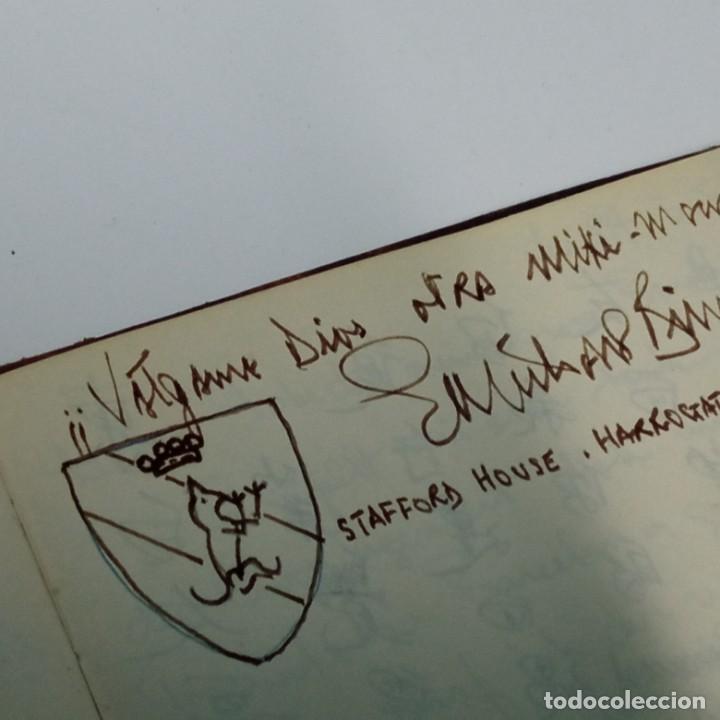 ¡¡Válgame Dios otra Miki-Mou
STAFFORD HOUSE, HARROGAT
todocoleccion